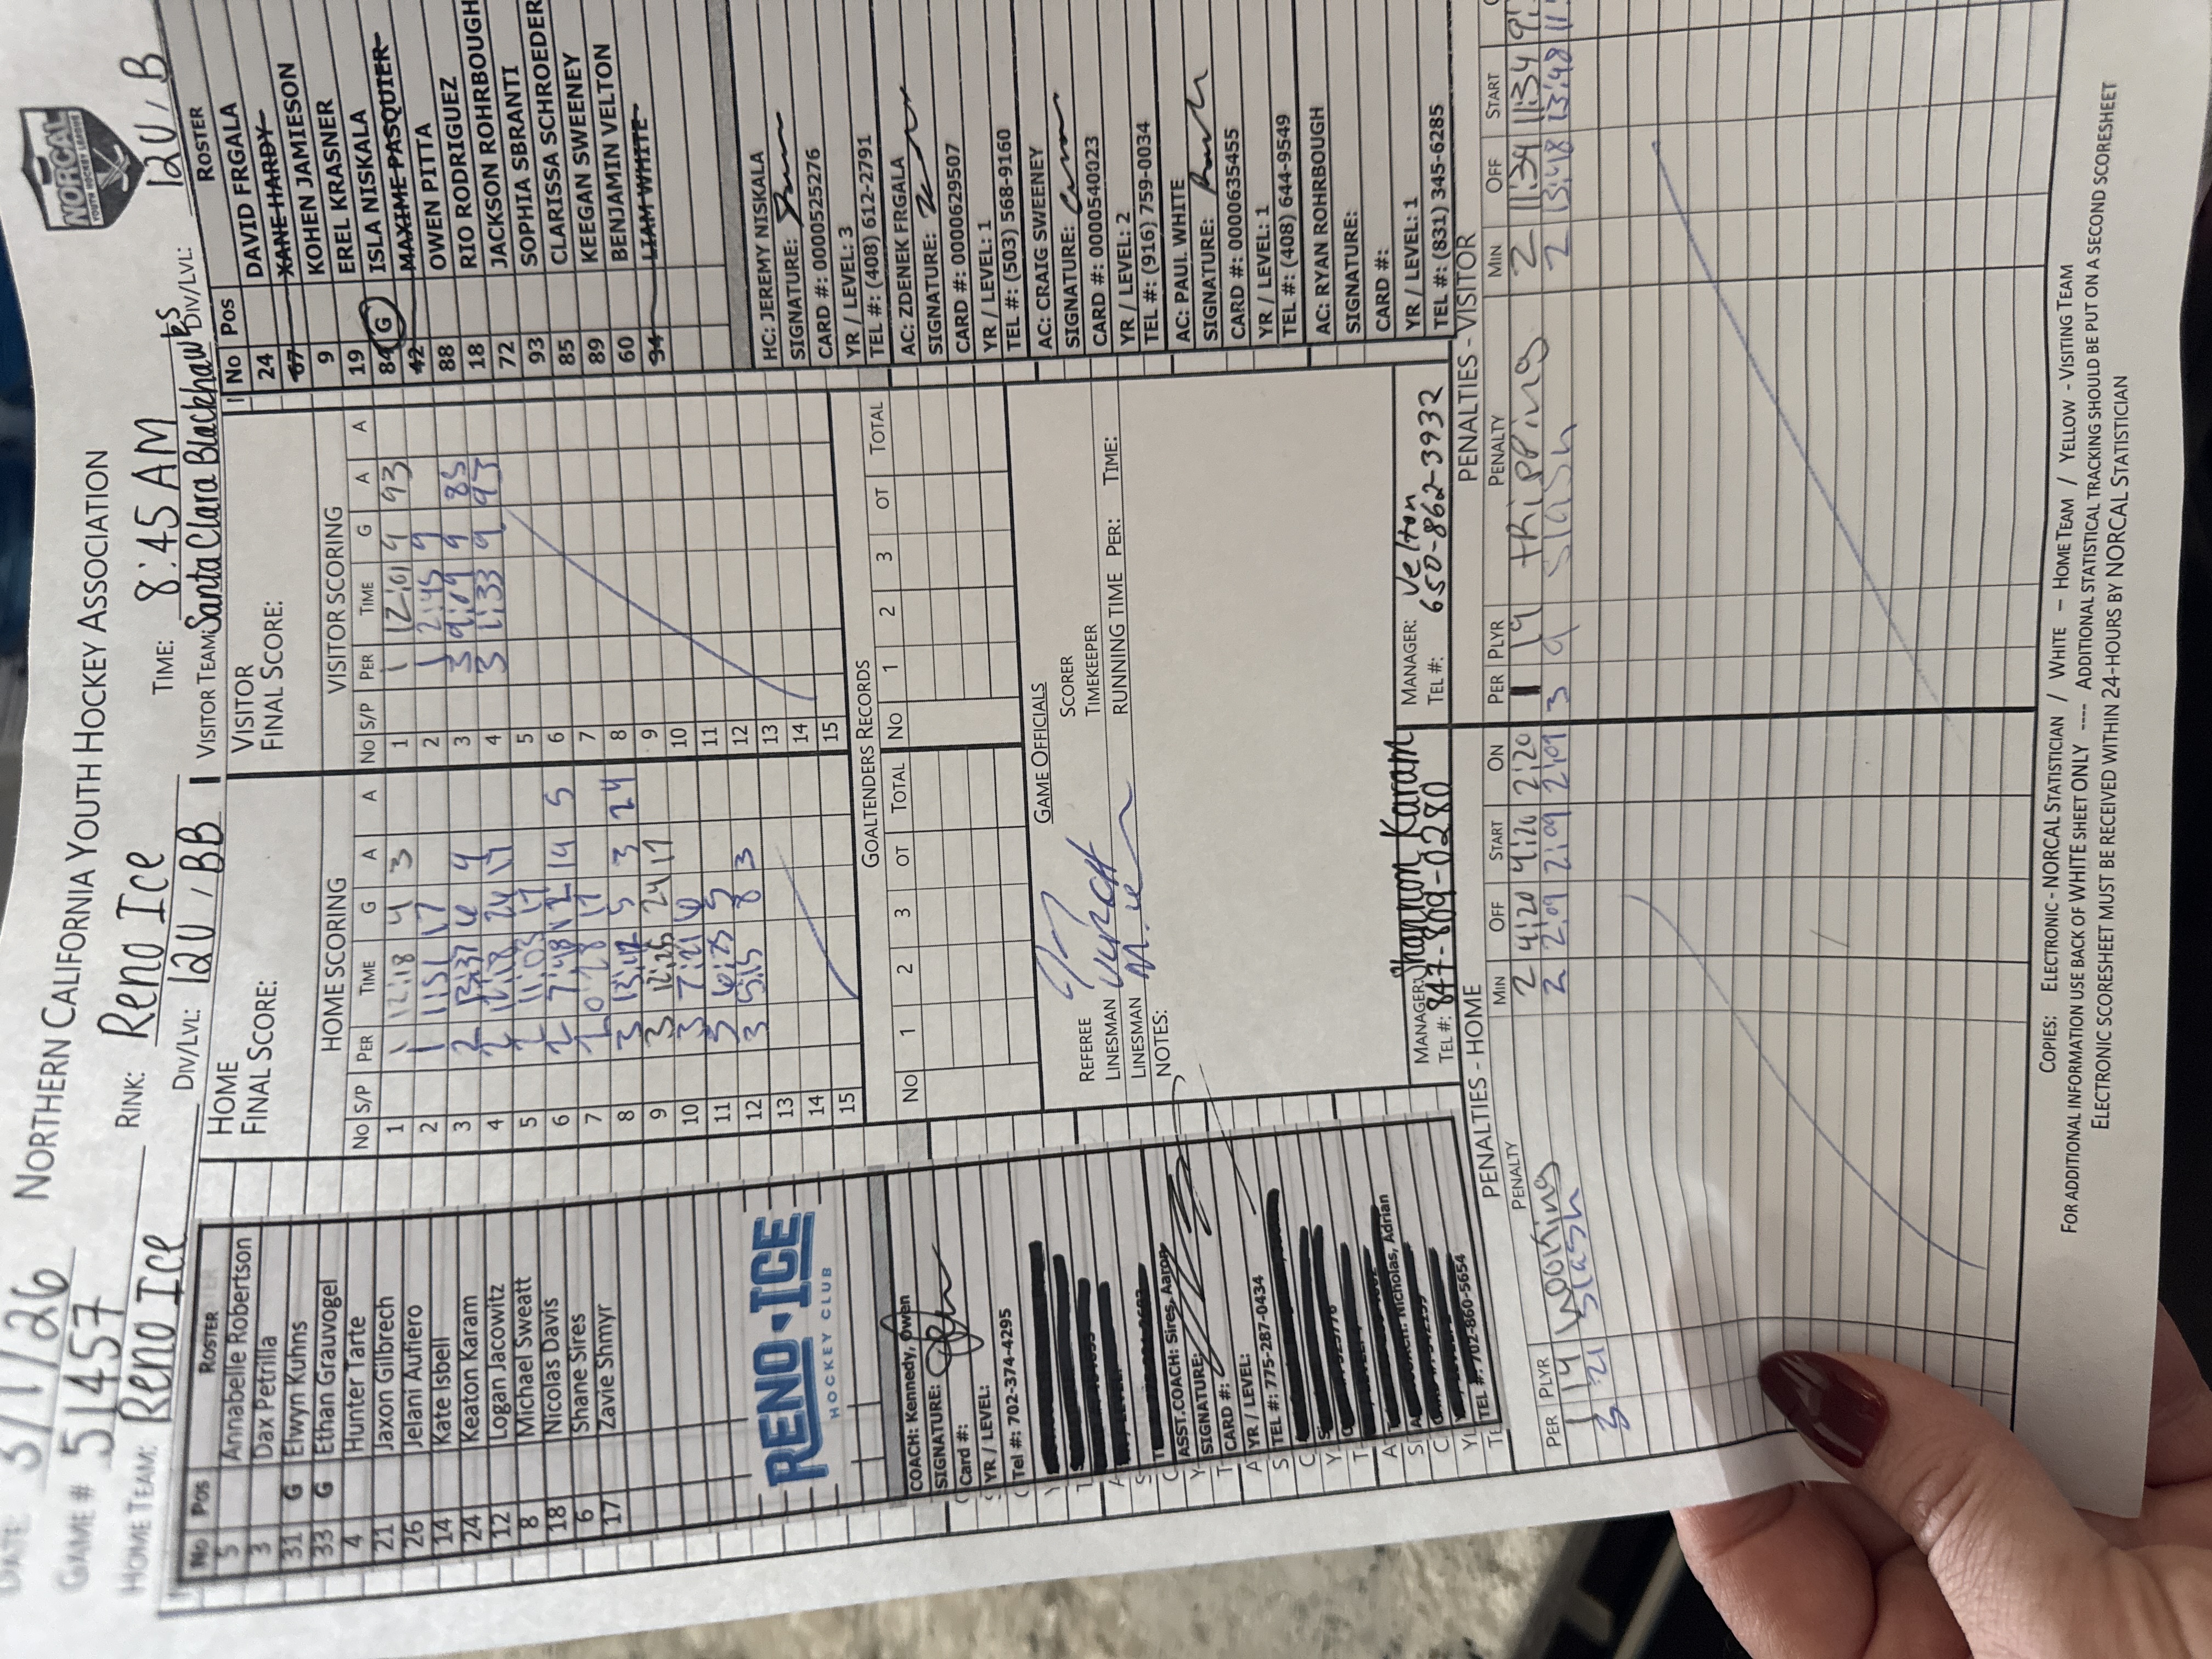 DATE 3/1/26 NORTHERN CALIFORNIA YOUTH HOCKEY ASSOCIATION
NORCAL
YOUTH HOCKEY LEAGUE
GAME # 51457 RINK: Reno Ice TIME: 8:45 AM
HOME TEAM: Reno Ice DIV/LVL: 12U / BB VISITOR TEAM: Santa Clara Blackhawks DIV/LVL: 12U / B
No Pos ROSTER
5 Annabelle Robertson
3 Dax Petrilla
31 G Elwyn Kuhns
33 G Ethan Grauvogel
4 Hunter Tarte
21 Jaxon Gilbrech
26 Jelani Aufiero
14 Kate Isbell
24 Keaton Karam
12 Logan Jacowitz
8 Michael Sweatt
18 Nicolas Davis
6 Shane Sires
17 Zavie Shmyr
RENO ICE
HOCKEY CLUB
COACH: Kennedy, Owen
SIGNATURE:
Card #:
YR / LEVEL:
Tel #: 702-374-4295
ASST.COACH: Sires, Aaron
SIGNATURE:
CARD #:
YR / LEVEL:
TEL #: 775-287-0434
Nicholas, Adrian
TEL #: 702-860-5654
HOME
FINAL SCORE:
HOME SCORING
No S/P PER TIME G A A
1 1 12:18 4 3
2 1 1:51 17
3 2 13:37 6 4
4 2 12:18 24 17
5 2 11:03 17
6 2 7:48 12 14 5
7 2 0:28 17
8 3 13:17 5 3 24
9 3 12:25 24 17
10 3 7:21 6
11 3 6:25 5
12 3 5:15 8 3
13
14
15
VISITOR
FINAL SCORE:
VISITOR SCORING
No S/P PER TIME G A A
1 1 12:01 9 93
2 1 2:45 9
3 3 9:09 9 85
4 3 1:33 9 93
5
6
7
8
9
10
11
12
13
14
15
GOALTENDERS RECORDS
No 1 2 3 OT TOTAL No 1 2 3 OT TOTAL
GAME OFFICIALS
REFEREE SCORER
LINESMAN TIMEKEEPER
LINESMAN RUNNING TIME PER: TIME:
NOTES:
MANAGER: Shannon Karam MANAGER: Velton
TEL #: 847-809-0280 TEL #: 650-862-3932
No Pos ROSTER
24 DAVID FRGALA
67 XANE HARDY
9 KOHEN JAMIESON
19 EREL KRASNER
84 G ISLA NISKALA
42 MAXIME PASQUIER
88 OWEN PITTA
18 RIO RODRIGUEZ
72 JACKSON ROHRBOUGH
93 SOPHIA SBRANTI
85 CLARISSA SCHROEDER
89 KEEGAN SWEENEY
60 BENJAMIN VELTON
94 LIAM WHITE
HC: JEREMY NISKALA
SIGNATURE:
CARD #: 0000525276
YR / LEVEL: 3
TEL #: (408) 612-2791
AC: ZDENEK FRGALA
SIGNATURE:
CARD #: 0000629507
YR / LEVEL: 1
TEL #: (503) 568-9160
AC: CRAIG SWEENEY
SIGNATURE:
CARD #: 0000540023
YR / LEVEL: 2
TEL #: (916) 759-0034
AC: PAUL WHITE
SIGNATURE:
CARD #: 0000635455
YR / LEVEL: 1
TEL #: (408) 644-9549
AC: RYAN ROHRBOUGH
SIGNATURE:
CARD #:
YR / LEVEL: 1
TEL #: (831) 345-6285
PENALTIES - HOME
PER PLYR PENALTY MIN OFF START ON
1 14 hooking 2 4:20 4:20 2:20
3 21 Slash 2 2:09 2:09 2:09
PENALTIES - VISITOR
PER PLYR PENALTY MIN OFF START
1 19 tripping 2 11:34 11:34
3 9 slash 2 13:48 13:48
COPIES: ELECTRONIC - NORCAL STATISTICIAN / WHITE – HOME TEAM / YELLOW - VISITING TEAM
FOR ADDITIONAL INFORMATION USE BACK OF WHITE SHEET ONLY ---- ADDITIONAL STATISTICAL TRACKING SHOULD BE PUT ON A SECOND SCORESHEET
ELECTRONIC SCORESHEET MUST BE RECEIVED WITHIN 24-HOURS BY NORCAL STATISTICIAN